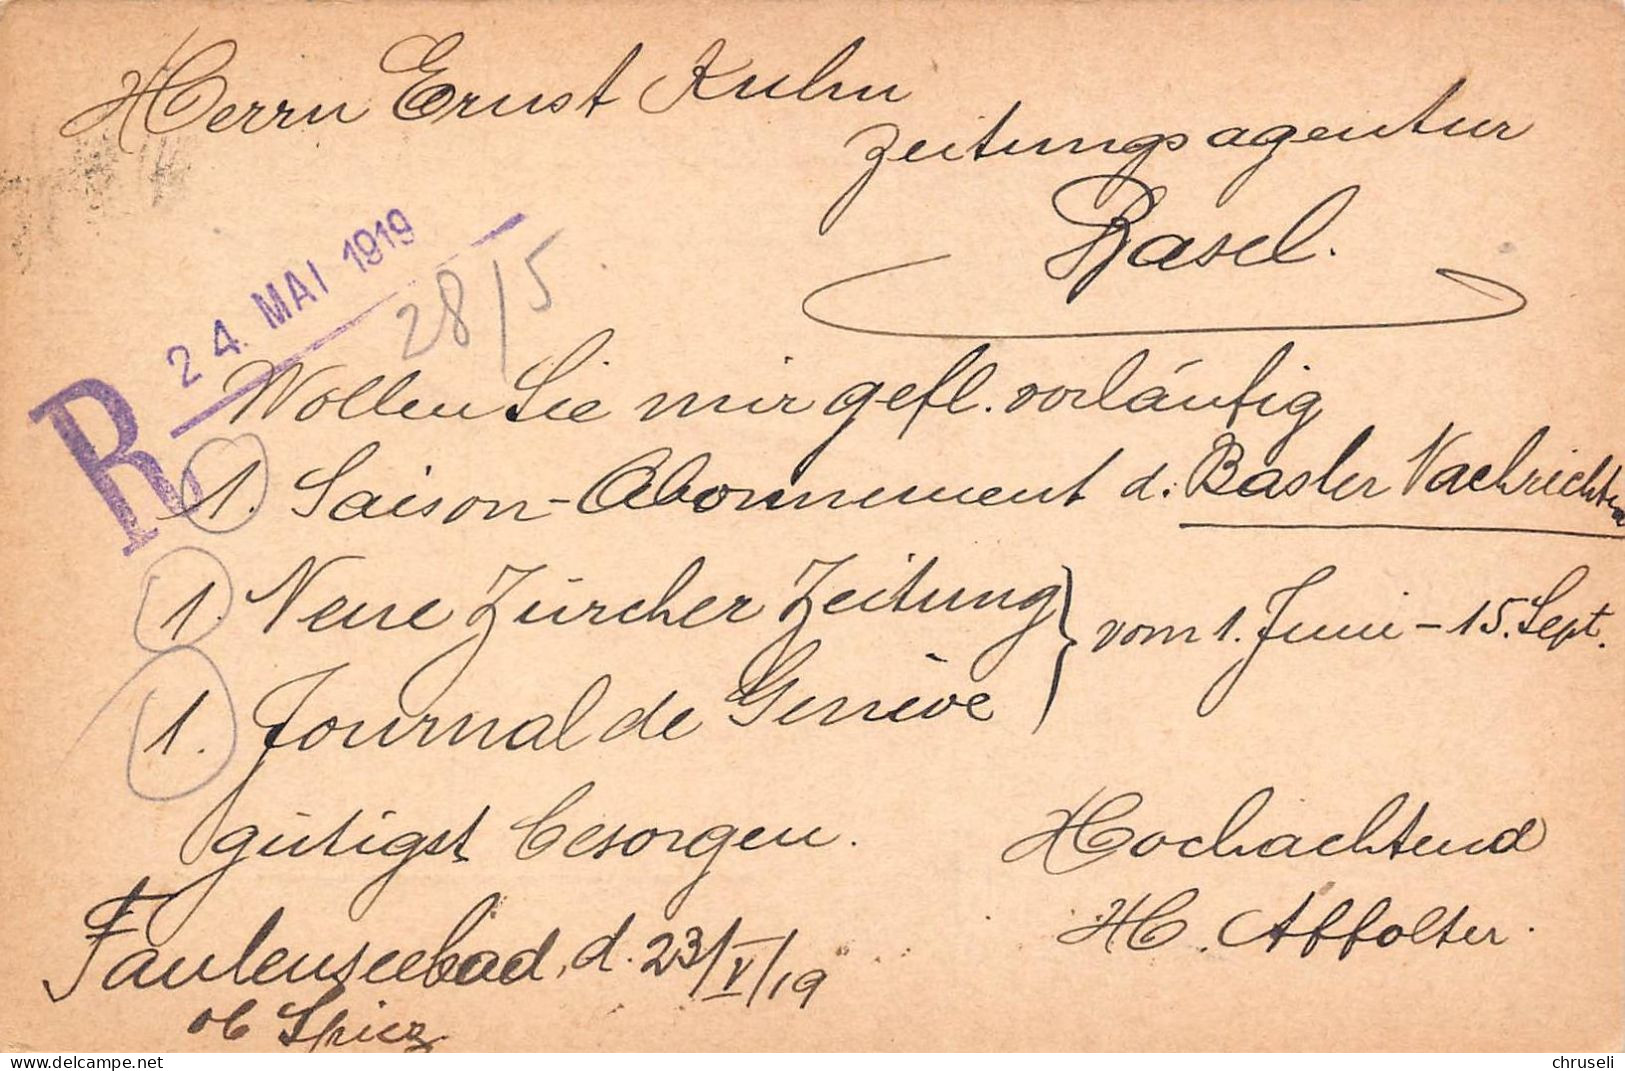 Herrn Ernst Kuhn
Zeitungsagentur
Basel.
R 24. MAI 1919
28/5
Wollen Sie mir gefl. vorläufig
1. Saison-Abonnement d. Basler Nachrichten
1. Neue Zürcher Zeitung } vom 1. Juni - 15. Sept.
1. Journal de Genève
gütigst besorgen.
Hochachtend
H. Affolter.
Faulenseebad, d. 23/V/19
ob Spiez
chruseli